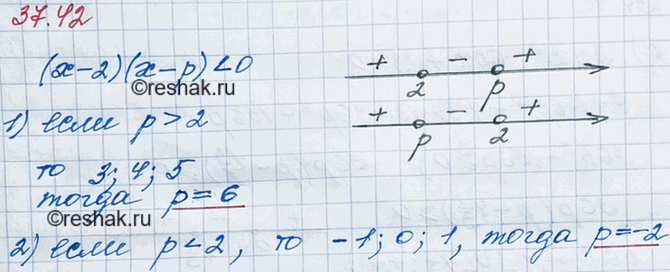 37.42
(x-2)(x-p)<0
+ - +
2 p
©reshak.ru
1) если p>2
+ - +
p 2
то 3; 4; 5
тогда p=6
©reshak.ru
2) если p<2, то -1; 0; 1, тогда p=-2